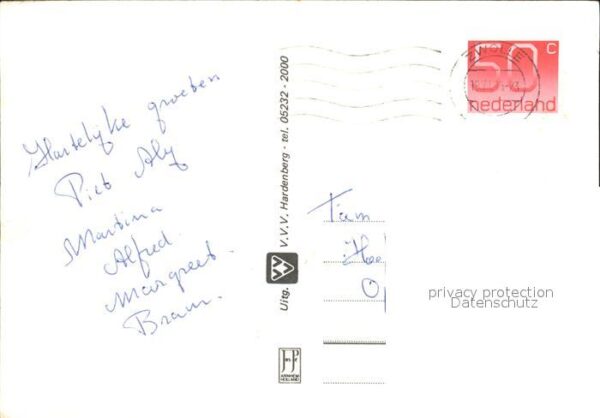 Hartelijke groeten
Piet Aly
Martina
Alfred.
Margreet.
Bram.
Uitg. V.V.V. Hardenberg - tel. 05232 - 2000
JosPé
ARNHEM
HOLLAND
ZWOLLE
50 C
nederland
Fam
privacy protection
Datenschutz